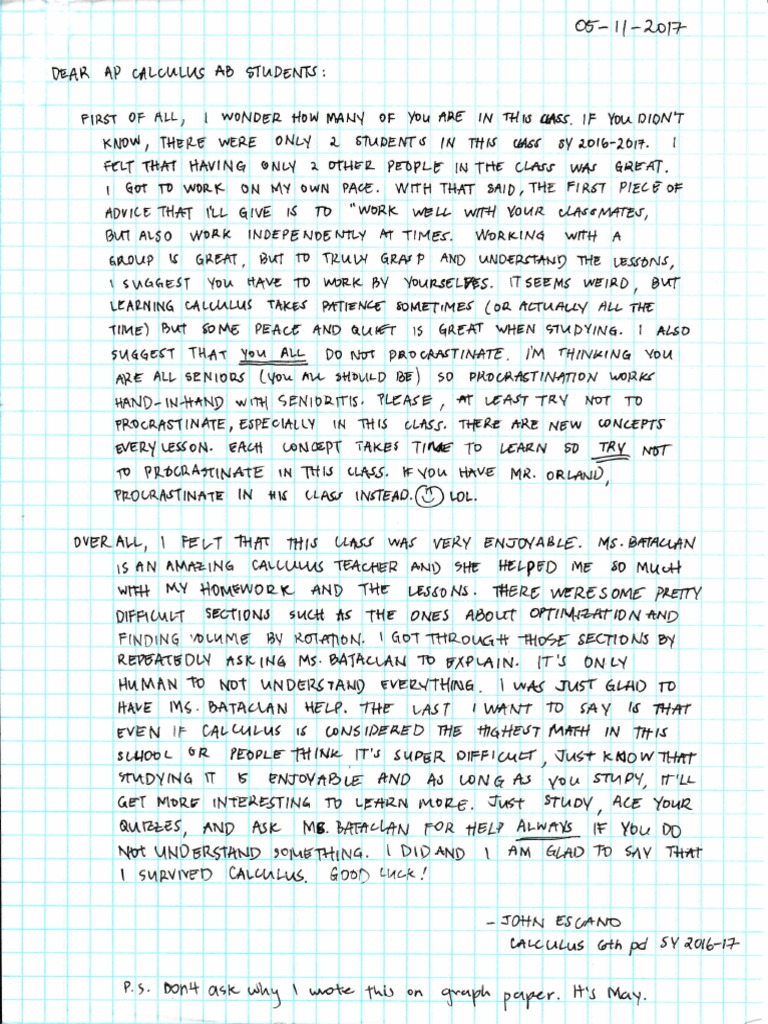 05-11-2017
DEAR AP CALCULUS AB STUDENTS:
FIRST OF ALL, I WONDER HOW MANY OF YOU ARE IN THIS CLASS. IF YOU DIDN'T
KNOW, THERE WERE ONLY 2 STUDENTS IN THIS CLASS SY 2016-2017. I
FELT THAT HAVING ONLY 2 OTHER PEOPLE IN THE CLASS WAS GREAT.
I GOT TO WORK ON MY OWN PACE. WITH THAT SAID, THE FIRST PIECE OF
ADVICE THAT I'LL GIVE IS TO "WORK WELL WITH YOUR CLASSMATES,
BUT ALSO WORK INDEPENDENTLY AT TIMES. WORKING WITH A
GROUP IS GREAT, BUT TO TRULY GRASP AND UNDERSTAND THE LESSONS,
I SUGGEST YOU HAVE TO WORK BY YOURSELVES. IT SEEMS WEIRD, BUT
LEARNING CALCULUS TAKES PATIENCE SOMETIMES (OR ACTUALLY ALL THE
TIME) BUT SOME PEACE AND QUIET IS GREAT WHEN STUDYING. I ALSO
SUGGEST THAT YOU ALL DO NOT PROCRASTINATE. I'M THINKING YOU
ARE ALL SENIORS (YOU ALL SHOULD BE) SO PROCRASTINATION WORKS
HAND-IN-HAND WITH SENIORITIS. PLEASE, AT LEAST TRY NOT TO
PROCRASTINATE, ESPECIALLY IN THIS CLASS. THERE ARE NEW CONCEPTS
EVERY LESSON. EACH CONCEPT TAKES TIME TO LEARN SO TRY NOT
TO PROCRASTINATE IN THIS CLASS. IF YOU HAVE MR. ORLAND,
PROCRASTINATE IN HIS CLASS INSTEAD. LOL.
OVERALL, I FELT THAT THIS CLASS WAS VERY ENJOYABLE. MS. BATACLAN
IS AN AMAZING CALCULUS TEACHER AND SHE HELPED ME SO MUCH
WITH MY HOMEWORK AND THE LESSONS. THERE WERE SOME PRETTY
DIFFICULT SECTIONS SUCH AS THE ONES ABOUT OPTIMIZATION AND
FINDING VOLUME BY ROTATION. I GOT THROUGH THOSE SECTIONS BY
REPEATEDLY ASKING MS. BATACLAN TO EXPLAIN. IT'S ONLY
HUMAN TO NOT UNDERSTAND EVERYTHING. I WAS JUST GLAD TO
HAVE MS. BATACLAN HELP. THE LAST I WANT TO SAY IS THAT
EVEN IF CALCULUS IS CONSIDERED THE HIGHEST MATH IN THIS
SCHOOL OR PEOPLE THINK IT'S SUPER DIFFICULT, JUST KNOW THAT
STUDYING IT IS ENJOYABLE AND AS LONG AS YOU STUDY, IT'LL
GET MORE INTERESTING TO LEARN MORE. JUST STUDY, ACE YOUR
QUIZZES, AND ASK MS. BATACLAN FOR HELP ALWAYS IF YOU DO
NOT UNDERSTAND SOMETHING. I DID AND I AM GLAD TO SAY THAT
I SURVIVED CALCULUS. GOOD LUCK!
-JOHN ESCANO
CALCULUS 6th pd SY 2016-17
P.S. Don't ask why I wrote this on graph paper. It's May.